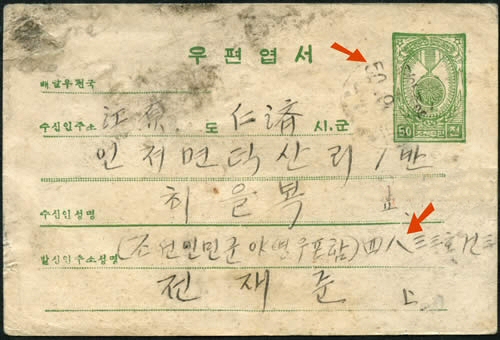 우편엽서
50 전
배달우편국
수신인주소 江原 도 仁濟 시.군
인제면덕산리 1반
수신인성명 최을복
(조선인민군야영우편함) 四八
발신인주소성명
전재준 上